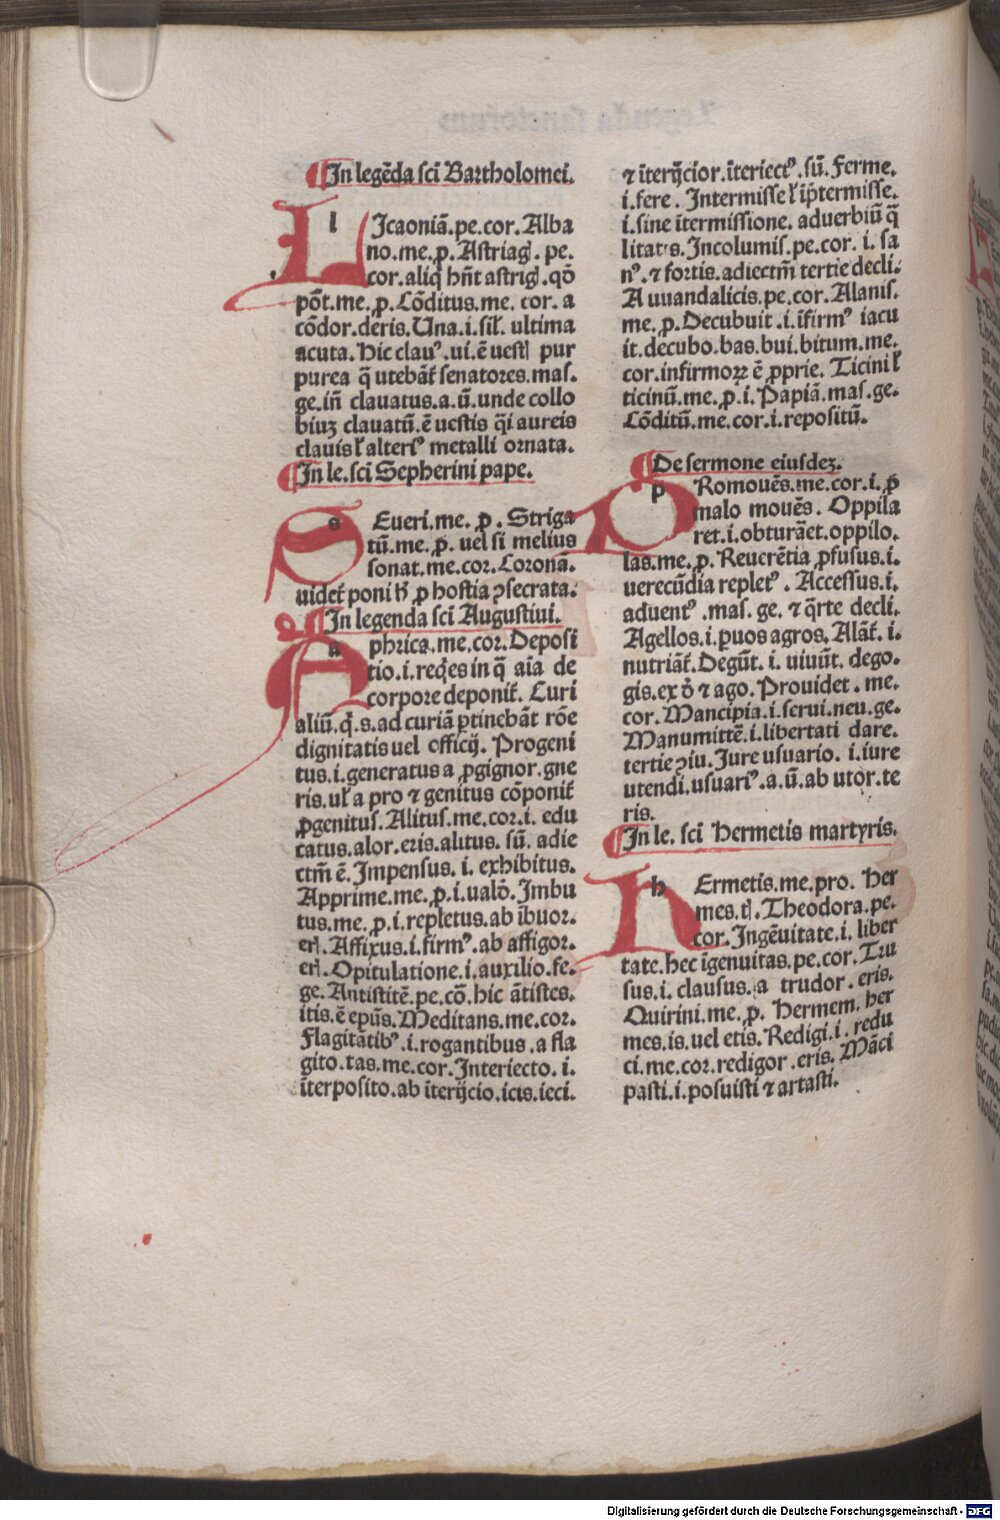 In legēda sci Bartholomei.
LIcaoniā.pe.cor.Alba
no.me.ꝓ.Astriagꝭ.pe.
cor.aliq̄ hn̄t astrigꝭ.qō
pōt.me.ꝓ.Cōditus.me. cor. a
cōdor.deris.Una.i.siƚ. ultima
acuta.Hic clauꝰ.ui.ē uestꝭ pur
purea q̄ utebāt̄ senatores.mas.
ge.iñ clauatus.a.ū.unde collo
biuꝫ clauatū.ē uestis q̄i aureis
clauis ƚ alteriꝰ metalli ornata.
In le.sci Sepherini pape.
SEueri.me. ꝓ. Striga
tū.me.ꝓ. uel si melius
sonat.me.cor.Coronā.
uidet̄ poni ħ ꝓ hostia ꝯsecrata.
In legenda sci Augustiui.
Aphrica.me.cor.Deposi
tio.i.reqͥes in q̄ aīa de
corpore deponit̄. Curi
aliū.q̇.s.ad curiā ꝑtinebāt rōe
dignitatis uel officij. Progeni
tus.i.generatus a ꝓgignor.gne
ris.uƚ a pro ⁊ genitus cōponit̄
ꝓgenitus.Alitus.me.cor.i. edu
catus.alor.eris.alitus. sū. adie
ctm̄ ē.Impensus. i. exhibitus.
Apprime.me.ꝓ.i.ualō.Imbu
tus.me.ꝓ.i.repletus.ab ībuor.
erꝭ.Affixus.i.firmꝰ.ab affigor.
erꝭ.Opitulatione.i.auxilio.fe.
ge.Antistitē.pe.cō.hic ātistes.
itis.ē ep̄us.Meditans.me.cor.
Flagitātibꝰ.i.rogantibus.a fla
gito.tas.me.cor.Interiecto. i.
īterposito.ab īterijcio.icis.ieci.
⁊ īterijcior.īteriectꝰ.sū.Ferme.
i.fere. Intermisse ƚ īp̄termisse.
i.sine ītermissione. aduerbiū q̄
litatꝭs.Incolumis.pe.cor. i. sa
nꝰ.⁊ fortis.adiectm̄ tertie decli.
A uuandalicis.pe.cor.Alanis.
me.ꝓ.Decubuit.i.īfirmꝰ iacu
it.decubo.bas.bui.bitum.me.
cor.infirmoꝝ ē ꝓprie. Ticini ƚ
ticinū.me.ꝓ.i.Papiā.mas.ge.
Cōditū.me.cor.i.repositū.
De sermone eiusdeꝫ.
PRomouēs.me.cor.i.p̄
malo mouēs. Oppila
ret.i.obturāet.oppilo.
las.me.ꝓ.Reuerētia ꝓfusus.i.
uerecūdia repletꝰ. Accessus.i.
aduentꝰ.mas. ge. ⁊ q̄rte decli.
Agellos.i.ꝑuos agros. Alāt̄. i.
nutriāt̄.Degūt. i. uiuūt. dego.
gis.ex ō ⁊ ago. Prouidet. me.
cor.Mancipia.i.serui.neu.ge.
Manumittē.i.libertati dare.
tertie ꝯiu.Iure usuario. i.iure
utendi.usuariꝰ.a.ū.ab utor.te
ris.
In le. sci Hermetis martyris.
HErmetis.me.pro. Her
mes.tꝭ.Theodora.pe.
cor.Ingēuitate.i. liber
tate.hec īgenuitas.pe.cor.Tru
sus.i. clausus. a trudor. eris.
Quirini.me.ꝓ. Hermem. her
mes.is.uel etis. Redigi.i. redu
ci.me.cor.redigor.eris. Māci
pasti.i.posuisti ⁊ artasti.
Digitalisierung gefördert durch die Deutsche Forschungsgemeinschaft - DFG